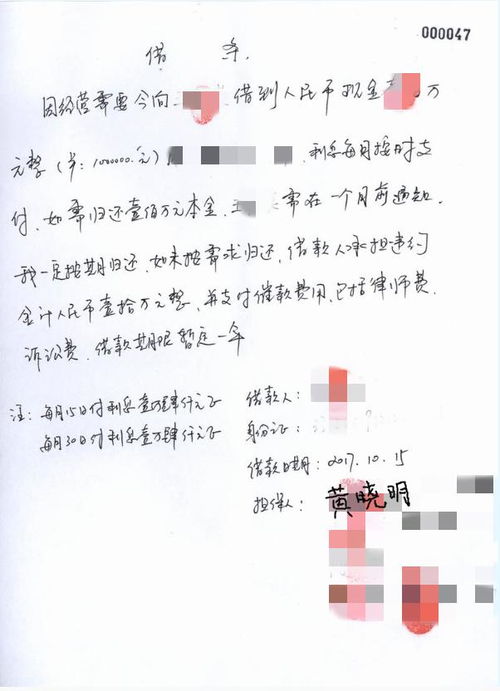 000047
借 条
因经营需要今向 借到人民币现金 万
元整(¥:1000000.元) 利息每月按时支
付,如需归还壹佰万元本金, 需在一个月前通知,
我一定按期归还,如未按需求归还,借款人承担违约
金计人民币壹拾万元整,并支付催款费用,包括律师费,
诉讼费,借款期限暂定一年
注:每月15日付利息壹万肆仟元正
每月30日付利息壹万肆仟元正
借款人:
身份证:
借款日期:2017.10.15
担保人:黄晓明